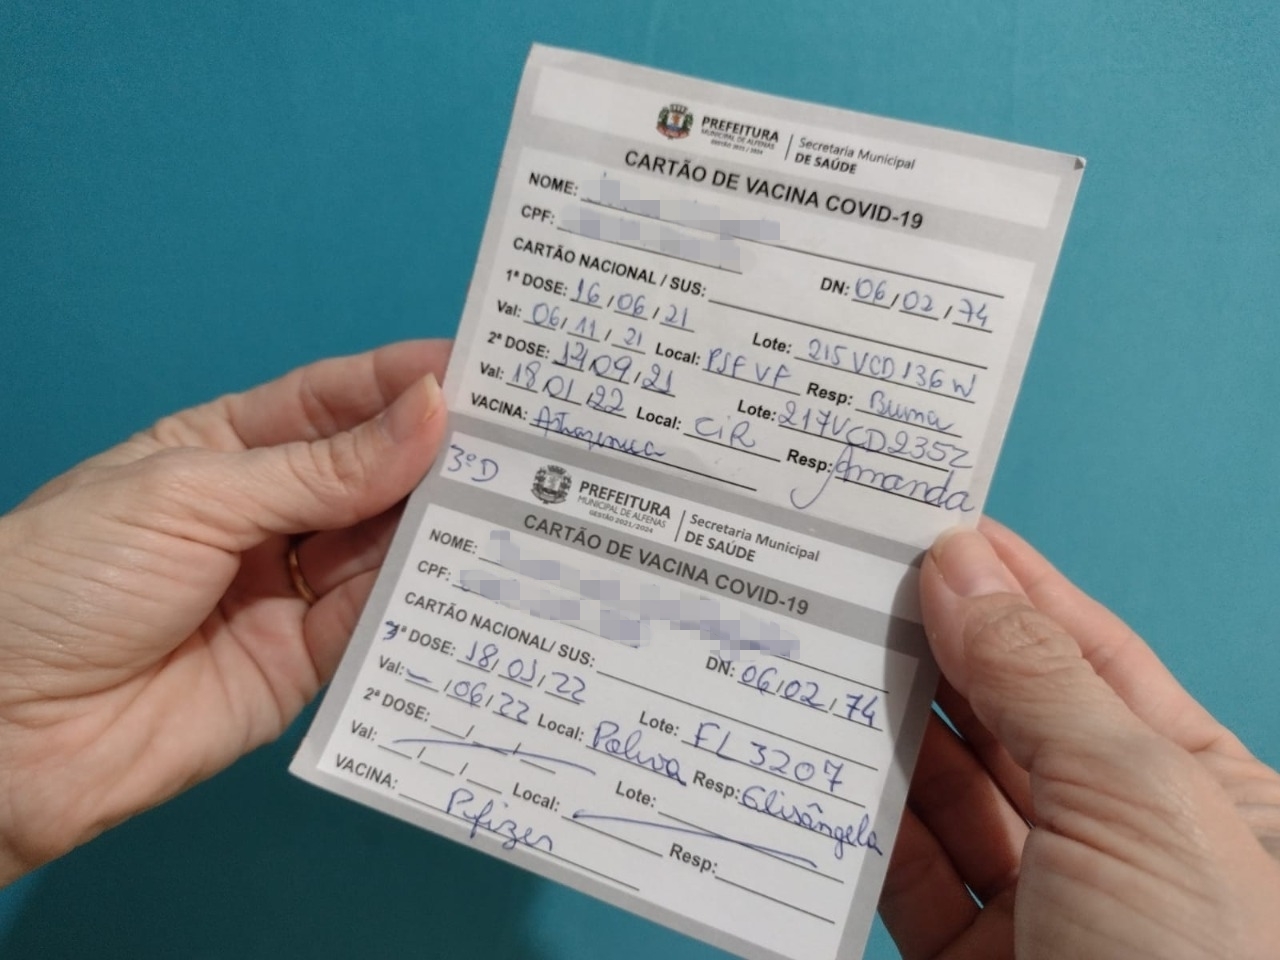 PREFEITURA
MUNICIPAL DE ALFENAS
GESTÃO 2021/2024
Secretaria Municipal
DE SAÚDE
CARTÃO DE VACINA COVID-19
NOME:
CPF:
CARTÃO NACIONAL / SUS: DN: 06/02/74
1ª DOSE: 16/06/21 Lote: 215VCD136W
Val: 06/11/21 Local: PSF VF Resp: Bruna
2ª DOSE: /09/21 Lote: 217VCD235Z
Val: 18/01/22 Local: CiR Resp: Amanda
VACINA:
3ª D
PREFEITURA
MUNICIPAL DE ALFENAS
GESTÃO 2021/2024
Secretaria Municipal
DE SAÚDE
CARTÃO DE VACINA COVID-19
NOME:
CPF:
CARTÃO NACIONAL/ SUS: DN: 06/02/74
3ª DOSE: 18/01/22 Lote: FL 3207
Val: – /06/22 Local: Resp: Elisângela
2ª DOSE: / / Lote:
Val: / / Local: Resp:
VACINA: Pfizer